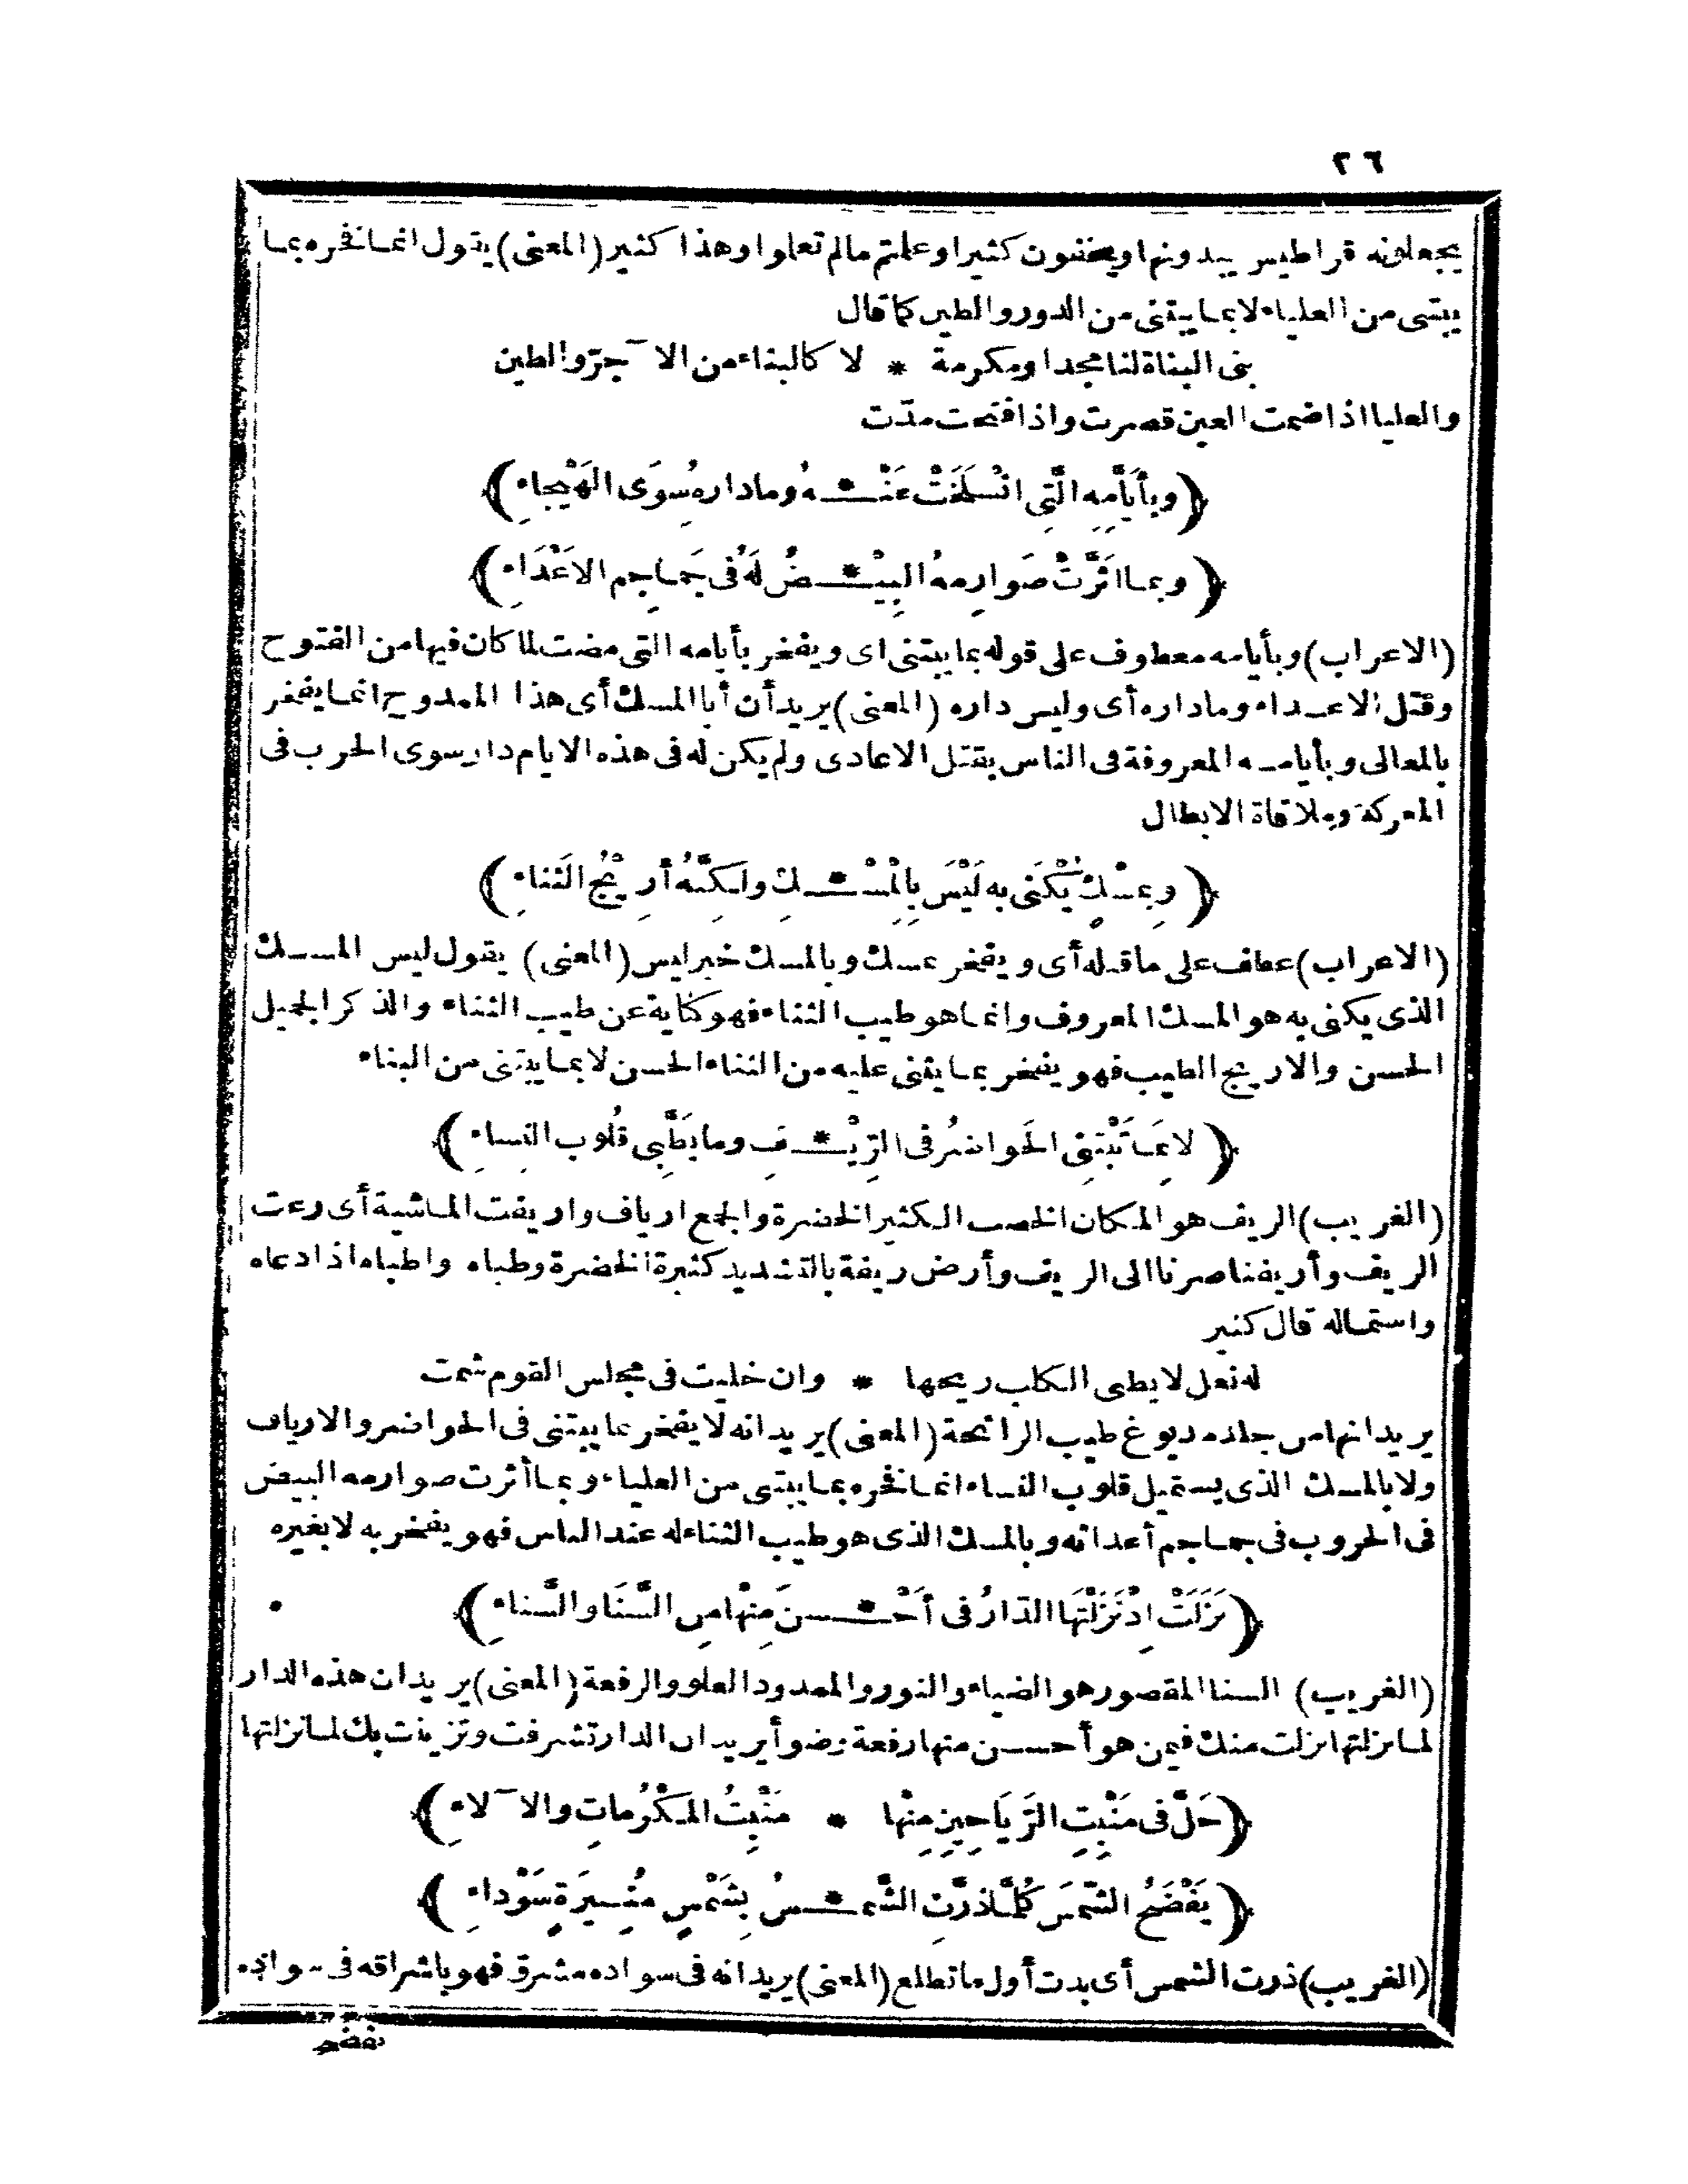 ٢٦
يجعلونه قراطيس يبدونها ويخفون كثيرا وعلمتم مالم تعلموا وهذا كثير (المعنى) يقول انما نفخره بما
يبتنى من العلياء لا بما يبتنى من الدور والطين كما قال
بنى البناة لنا مجدا ومكرمة * لا كالبناء من الآجرّ والطين
والعليا اذا ضمت العين قصرت واذا فتحت مدّت
﴿وبأيَّامِهِ الَّتِى انْسَلَخَتْ عَنْـ * ـهُ وما دارهُ سِوَى الهَيْجاءِ﴾
﴿وبما اَثَّرَتْ صَوارِمهُ البِيْـ * ـضُ لَهُ فى جَماجِم الاَعْدَاءِ﴾
(الاعراب) وبأيامه معطوف على قوله بما يبتنى اى ويفخر بأيامه التى مضت لما كان فيها من الفتوح
وقتل الاعداء وما داره أى وليس داره (المعنى) يريد أن أبا المسك أى هذا الممدوح انما يفخر
بالمعالى وبأيامه المعروفة فى الناس بقتل الاعادى ولم يكن له فى هذه الايام دار سوى الحرب فى
المعركة وملاقاة الابطال
﴿وبمسْكٍ يُكْنَى به لَيْسَ بِالمِسْـ * ـكِ ولكنَّهُ أرِيْجُ الثَناءِ﴾
(الاعراب) عطف على ما قبله أى ويفخر بمسك وبالمسك خبر ليس (المعنى) يقول ليس المسك
الذى يكنى به هو المسك المعروف وانما هو طيب الثناء فهو كناية عن طيب الثناء والذكر الجميل
الحسن والاريج الطيب فهو يفخر بما يثنى عليه من الثناء الحسن لا بما يبتنى من البناء
﴿لا بِمَا تَبْتَنِى الحَواضرُ فى الرِّيْـ * ـفِ وما يَطَّبِى قُلوب النِساءِ﴾
(الغريب) الريف هو المكان الخصب الكثير الخضرة والجمع ارياف واريفت الماشية أى رعت
الريف وأريفنا صرنا الى الريف وأرض ريفة بالتشديد كثيرة الخضرة وطباه واطباه اذا دعاه
واستماله قال كثير
له نعل لا يطبى الكلب ريحها * وان خليت فى مجلس القوم شمت
يريد انها من جلد مدبوغ طيب الرائحة (المعنى) يريد انه لا يفخر بما يبتنى فى الحواضر والارياف
ولا بالمسك الذى يستميل قلوب النساء انما نفخره بما يبتنى من العلياء وبما أثرت صوارمه البيض
فى الحروب فى جماجم أعدائه وبالمسك الذى هو طيب الثناء له عند الناس فهو يفخر به لا بغيره
﴿نَزَلَتْ اِذْ نَزَلْتَهَا الدّارُ فى أَحْـ * ـسنَ مِنْها مِن السَّنَا والسَّناءِ﴾
(الغريب) السنا المقصور هو الضياء والنور والممدود العلو والرفعة (المعنى) يريد ان هذه الدار
لما نزلتها نزلت منك فيمن هو أحسن منها رفعة وضوأ يريد ان الدار تشرفت وتزينت بك لما نزلتها
﴿حَلَّ فى مَنْبِتِ الرَّيَاحِينِ مِنْها * مَنْبِتُ المَكْرُماتِ والآلاءِ﴾
﴿يَفْضَحُ الشّمسَ كُلَّما ذرَّتِ الشَّمـ * ـسُ بِشَمْسٍ مُنِيرَةٍ سَوْداءِ﴾
(الغريب) ذرت الشمس أى بدت أول ما تطلع (المعنى) يريد انه فى سواده مشرق فهو باشراقه فى سواده
يفضح